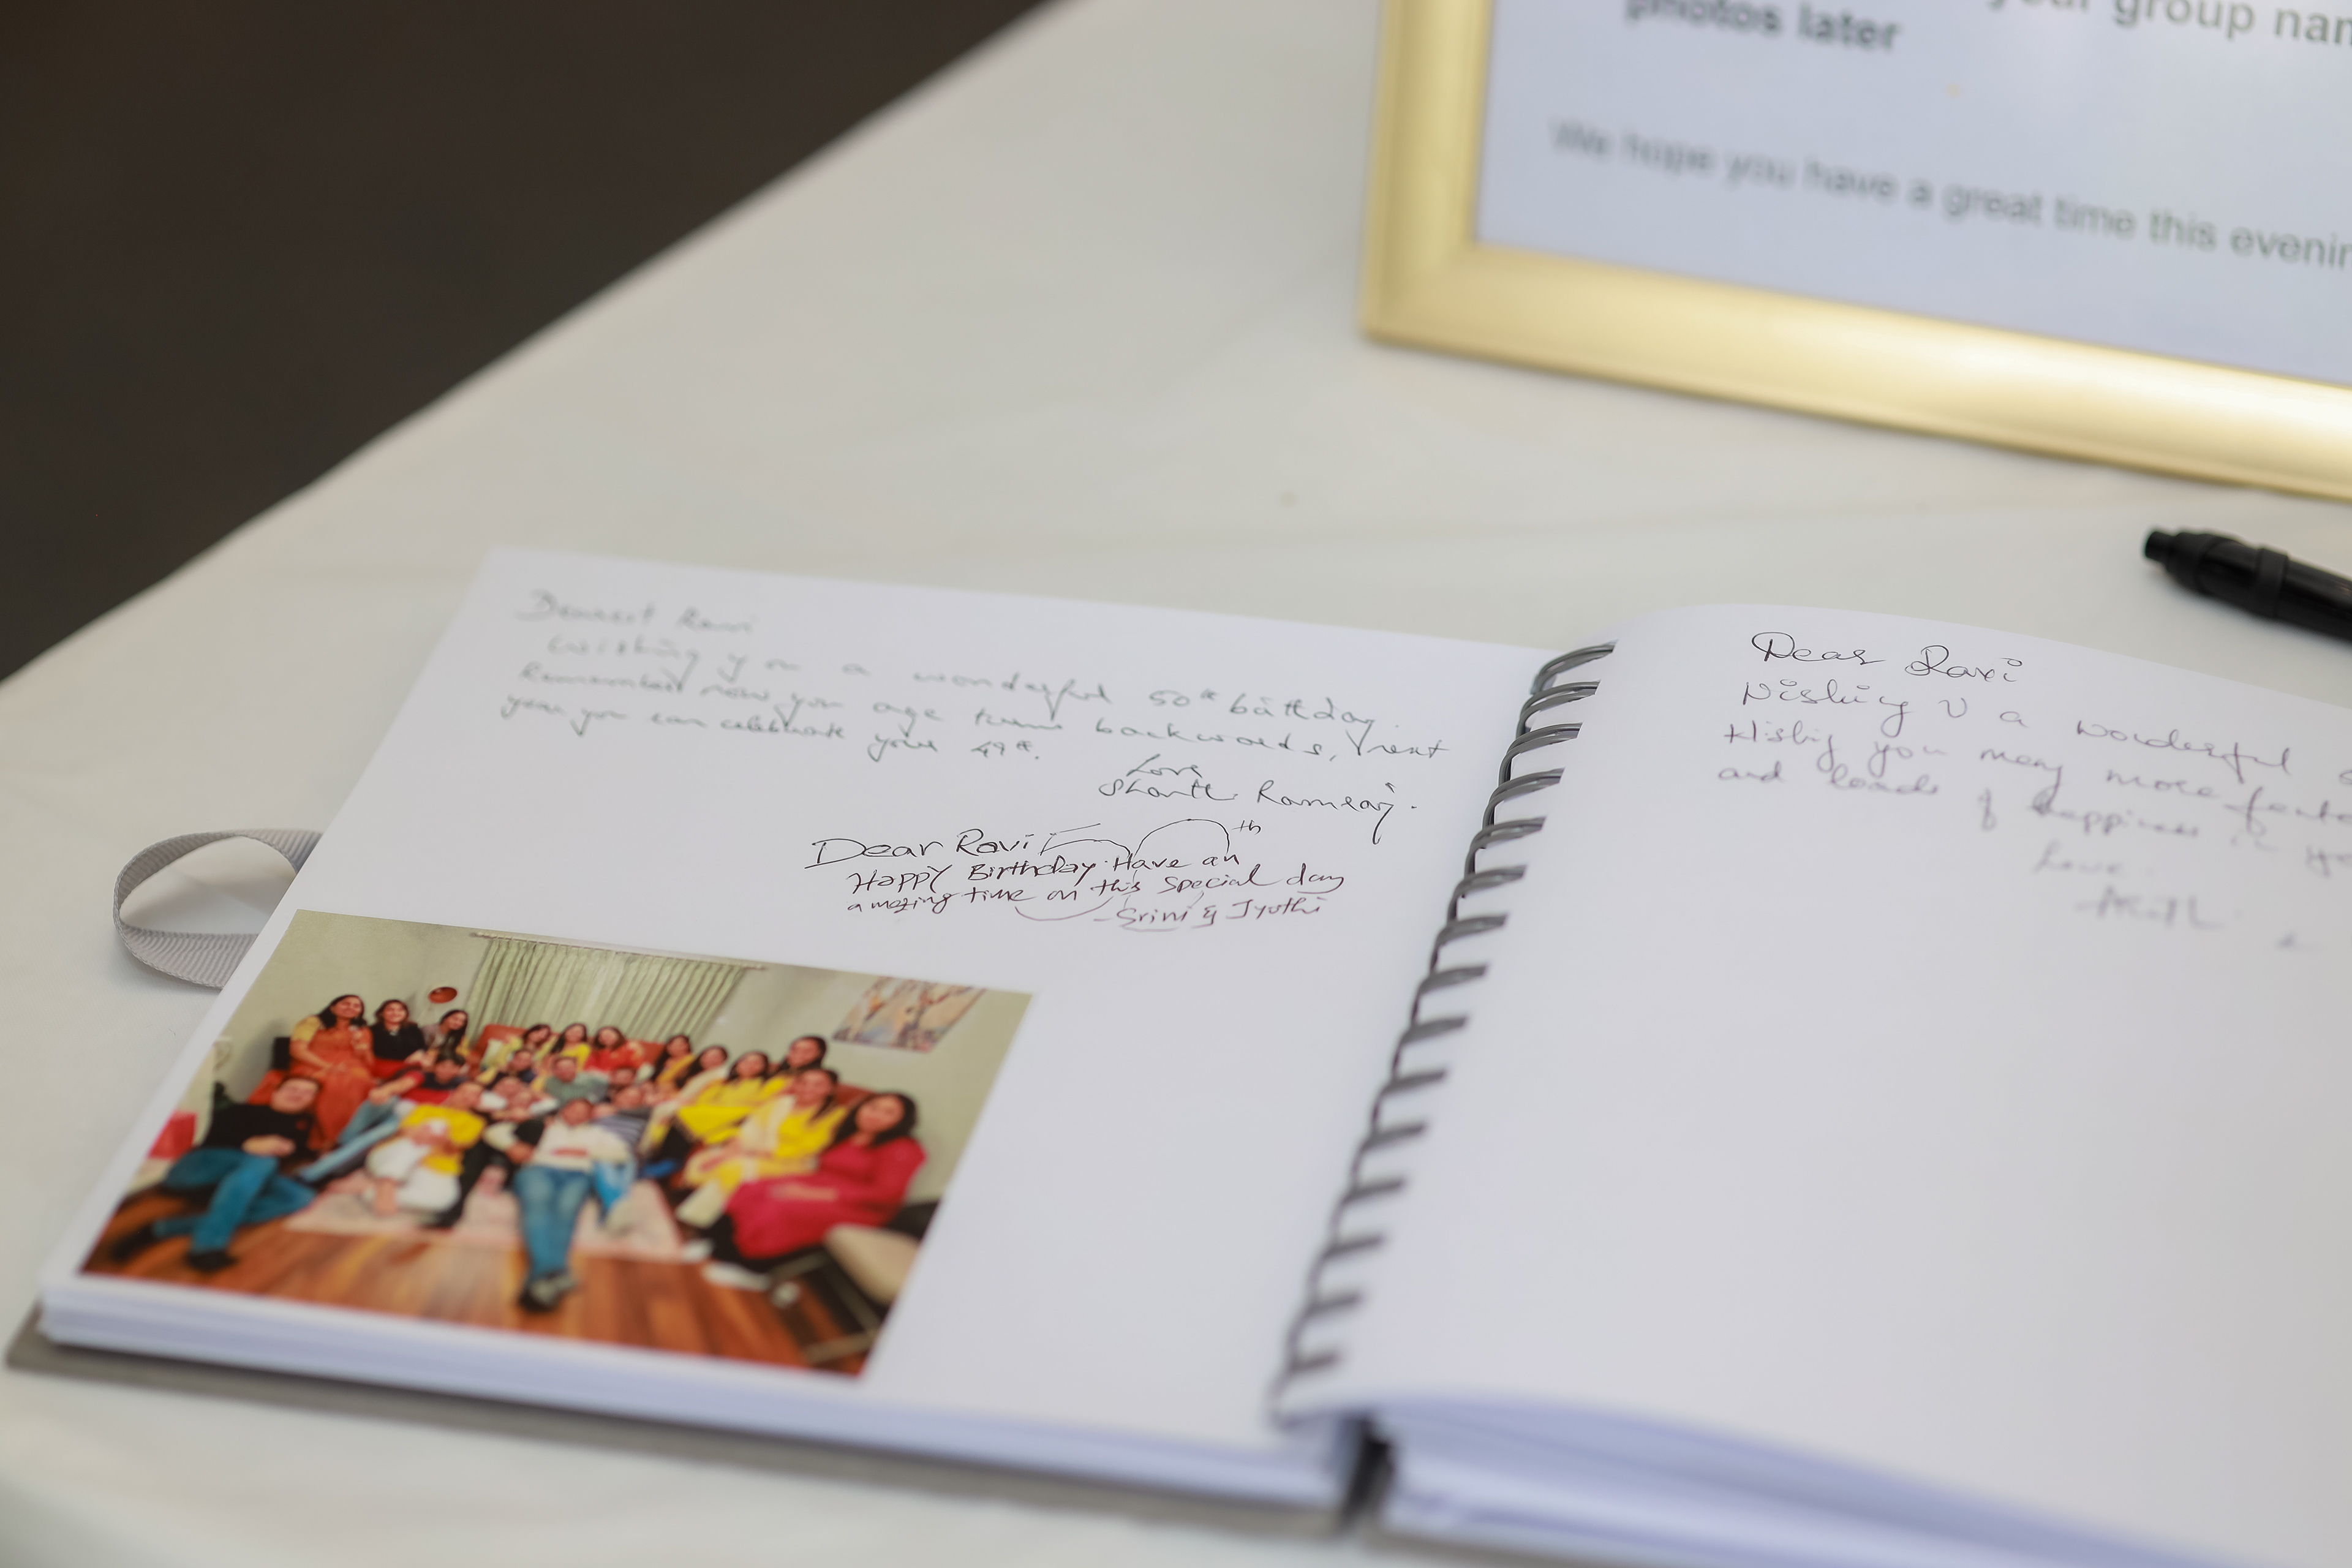 your group
photos later
We hope you have a great time this
Dearest Ravi
Wishing you a wonderful 50th birthday.
Remember now your age turns backwards, next
year you can celebrate your 49th.
Love
Shanti
Dear Ravi
50th
Happy Birthday. Have an
amazing time on this special day
- Srini & Jyothi
Dear Ravi
Wishing U a wonderful
Wishing you many more
and loads of happiness in
Love